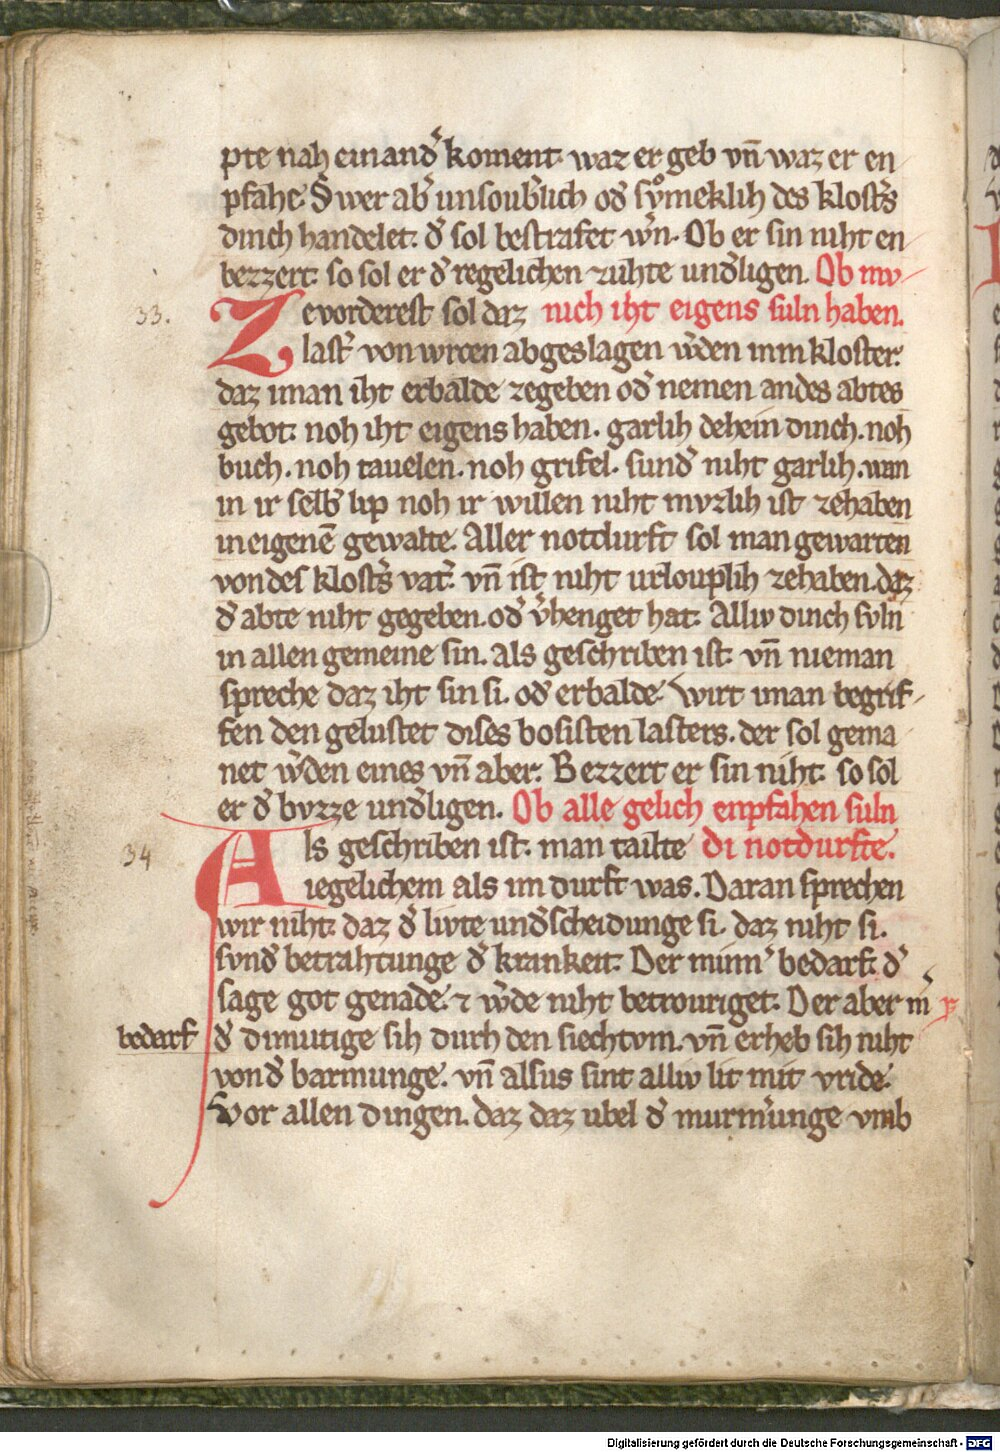 pte nah einand̾ koment. waz er geb vn̄ waz er en
pfahe. Swer ab̾ unsoub̾lich od̾ sv̊meklih des klost̾s
dinch handelet. d̾ sol bestrafet w̾n. Ob er sin niht en
bezzert. so sol er d̾ regelichen zuhte und̾ligen. Ob mv-
33. Zevorderest sol daz nich iht eigens suln haben.
last̾ von wrcen abgeslagen w̾den inm kloster.
daz iman iht erbalde zegeben od̾ nemen an des abtes
gebot. noh iht eigens haben. garlih dehein dinch. noh
buch. noh tauelen. noh grifel. sund̾ niht garlih. wan
in ir selb̾ lip noh ir willen niht mvzlih ist zehaben
in eigenē gewalte. Aller notdurft sol man gewarten
von des klost̾s vat̾. vn̄ ist niht urlouplih zehaben. daz
d̾ abte niht gegeben. od̾ v̾henget hat. Alliv dinch svln
in allen gemeine sin. als geschriben ist. vn̄ nieman
spreche daz iht sin si. od̾ erbalde. Wirt iman begrif-
fen den gelustet dises bosisten lasters. der sol gema
net w̾den eines vn̄ aber. Bezzert er sin niht. so sol
er d̾ bvzze und̾ligen. Ob alle gelich enpfahen suln
34 Als geschriben ist. man tailte di notdurfte.
iegelichem als im durft was. Daran sprechen
wir niht. daz d̾ livte und̾scheidunge si. daz niht si.
svnd̾ betrahtunge d̾ krankeit. Der minn̾ bedarf. d̾
sage got genade. ⁊ w̾de niht betrouriget. Der aber m̾
bedarf d̾ dimutige sih durch den siechtvm. vn̄ erheb sih niht
von d̾ barmunge. vn̄ alsus sint alliv lit mit vride.
Vor allen dingen. daz daz ubel d̾ murm̾unge vmb
Digitalisierung gefördert durch die Deutsche Forschungsgemeinschaft - DFG